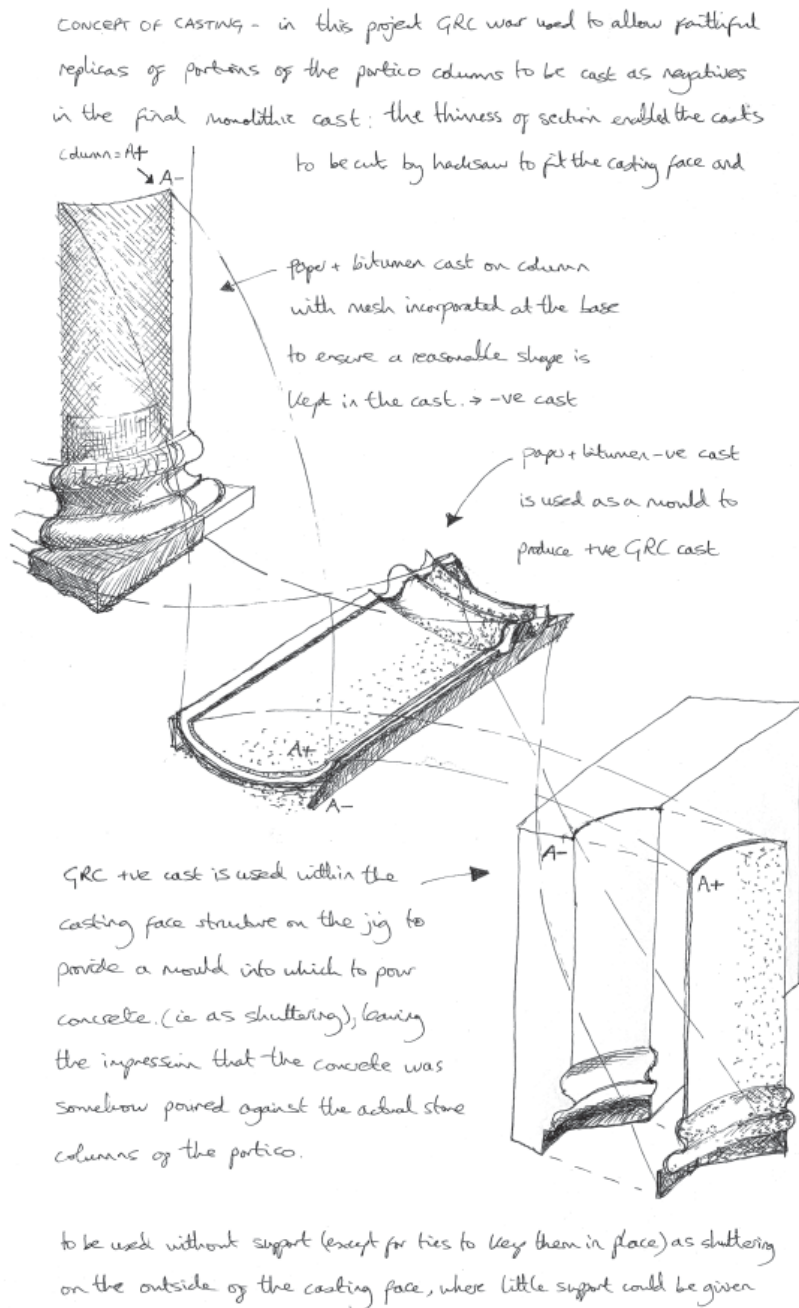 CONCEPT OF CASTING - in this project GRC was used to allow faithful
replicas of portions of the portico columns to be cast as negatives
in the final monolithic cast: the thinness of section enabled the casts
to be cut by hacksaw to fit the casting face and
column = A+
A-
paper + bitumen cast on column
with mesh incorporated at the base
to ensure a reasonable shape is
kept in the cast. → -ve cast
paper + bitumen -ve cast
is used as a mould to
produce +ve GRC cast
A+
A-
A-
A+
GRC +ve cast is used within the
casting face structure on the jig to
provide a mould into which to pour
concrete. (ie as shuttering), leaving
the impression that the concrete was
somehow poured against the actual stone
columns of the portico.
to be used without support (except for ties to keep them in place) as shuttering
on the outside of the casting face, where little support could be given